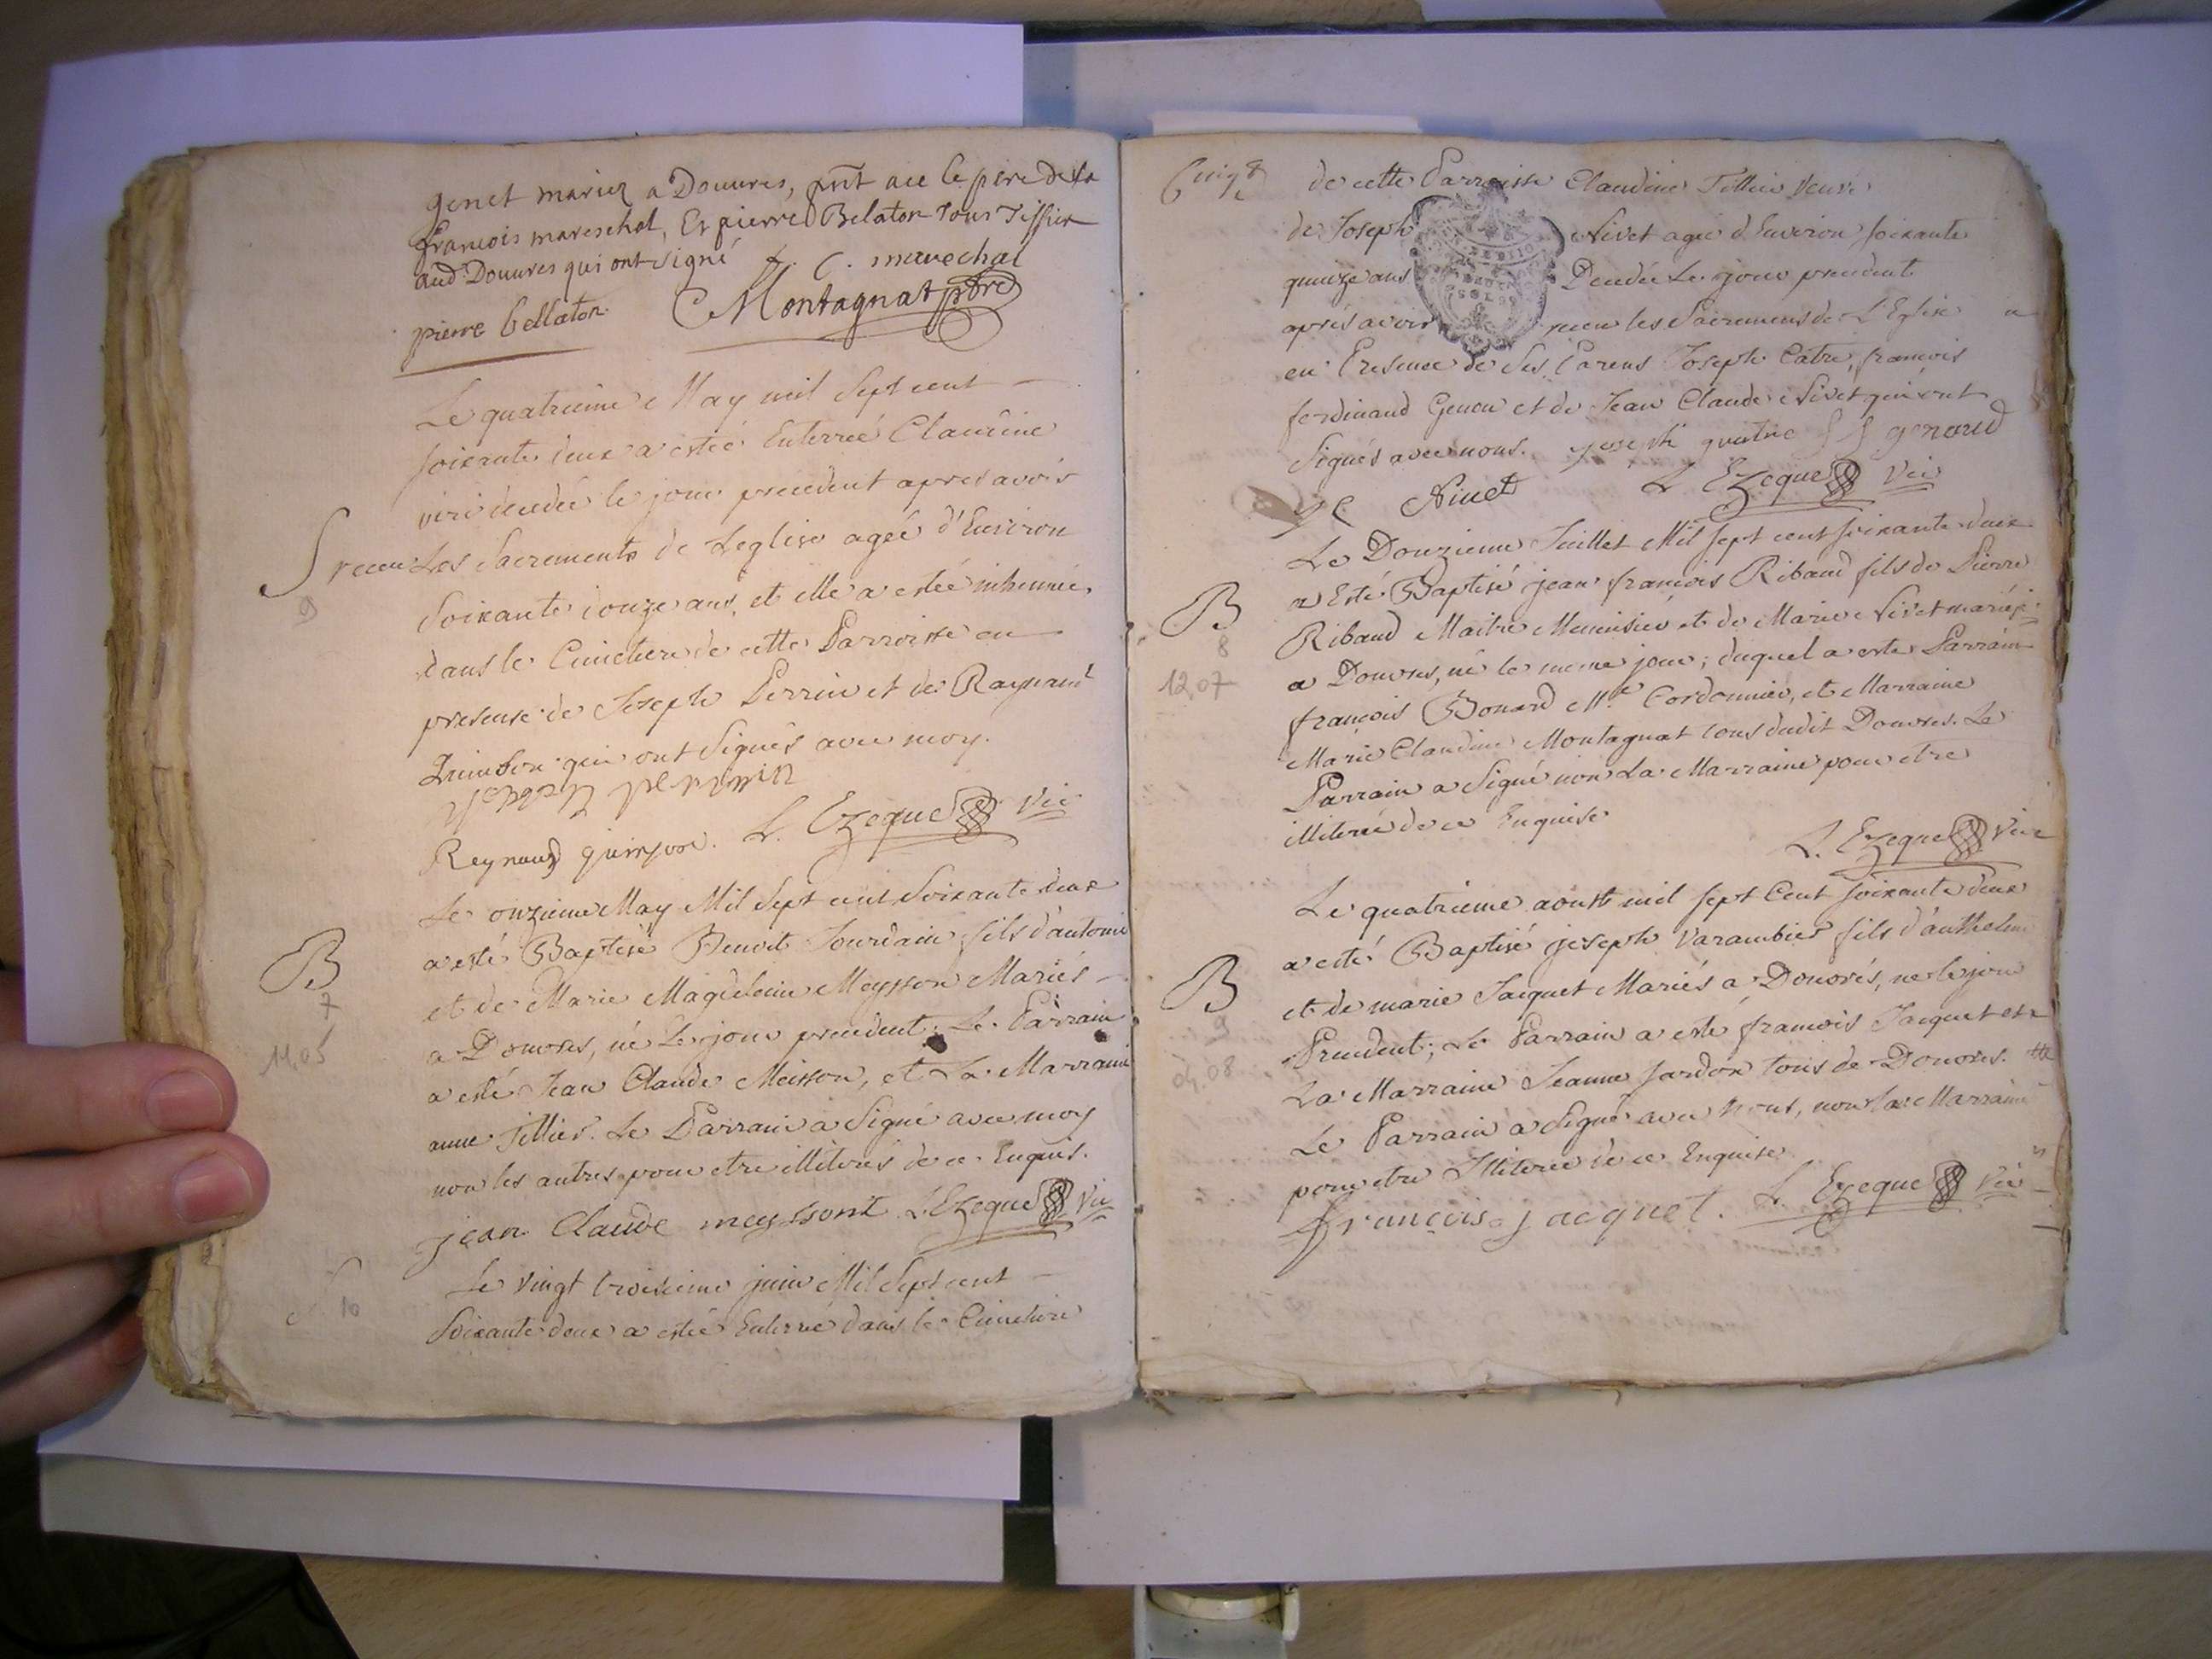 genet mariez a Douures, prnt ace le pere de la
francois mareschal, Et pierre Belaton tous Tissier
aud. Douures qui ont signé f. C. marechal
pierre bellaton Montagnat ptre
Le quatrieme May mil Sept cent
Soixante deux a esteé Enterreé Claudine
viri decedée le jour precedent apres avoir
S receu Les Sacrements de Leglise ageé d'Environ
9
Soixante et onze ans, et elle a estée inhumeé
dans le Cimetiere de cette Parroisse en
presense de Joseph Perrin et de Raynaud
qui ont Signés avec moy.
perrin
Reynaud L. Ezeque Vic
Le onzieme May Mil Sept cent Soixante deux
a esté Baptisé Benoit Jourdain fils d'antoine
B
7
et de Marie Magdeleine Meysson Mariés
11,05
a Douvres, né Le jour precedent; Le Parrain
a esté Jean Claude Meisson, et La Marraine
anne Tillier. Le Parrain a Signé avec moy
non les autres pour etre illiterés de ce Enquis.
jean Claude meyssont L. Ezeque Vic
Le vingt troisieme juin Mil Sept cent
10
Soixante deux a esteé Enterreé dans le Cimetiere
de cette Parroisse Claudine Tillier veuve
de Joseph Nivet ageé d'Environ soixante
quinze ans Decedée Le jour precedent
apres avoir receu les Sacremens de L'Eglise
en Presence de Ses Parens Joseph Catre, francois
ferdinand Genou et de Jean Claude Nivet qui ont
Signés avec nous. joseph quatre f f genoud
J C Nivet L Ezeque Vic
Le Douzieme Juillet Mil sept cent soixante deux
a Esté Baptisé jean francois Ribaud fils de Pierre
B
8
Ribaud Maitre Menuisier et de Marie Nivet mariés
12,07
a Douvres, né le meme jour; duquel a esté Parrain
françois Bonard Me Cordonnier, et Marraine
Marie Claudine Montagnat tous dudit Douvres. Le
Parrain a Signé non La Marraine pour etre
illitereé de ce Enquise
L. Ezeque Vic
Le quatrieme aoust mil sept Cent soixante deux
a esté Baptisé joseph Varambier fils d'anthelme
B
9
et de marie Jacquet Mariés a Douvrés, ne le jour
04,08
Precedent; Le Parrain a esté francois Jacquet et
La Marraine Jeanne Jardon tous de Douvres.
Le Parrain a Signé avec Nous, non la Marraine
pour etre Illiteree de ce Enquise
françois jacquet. L. Ezeque Vic